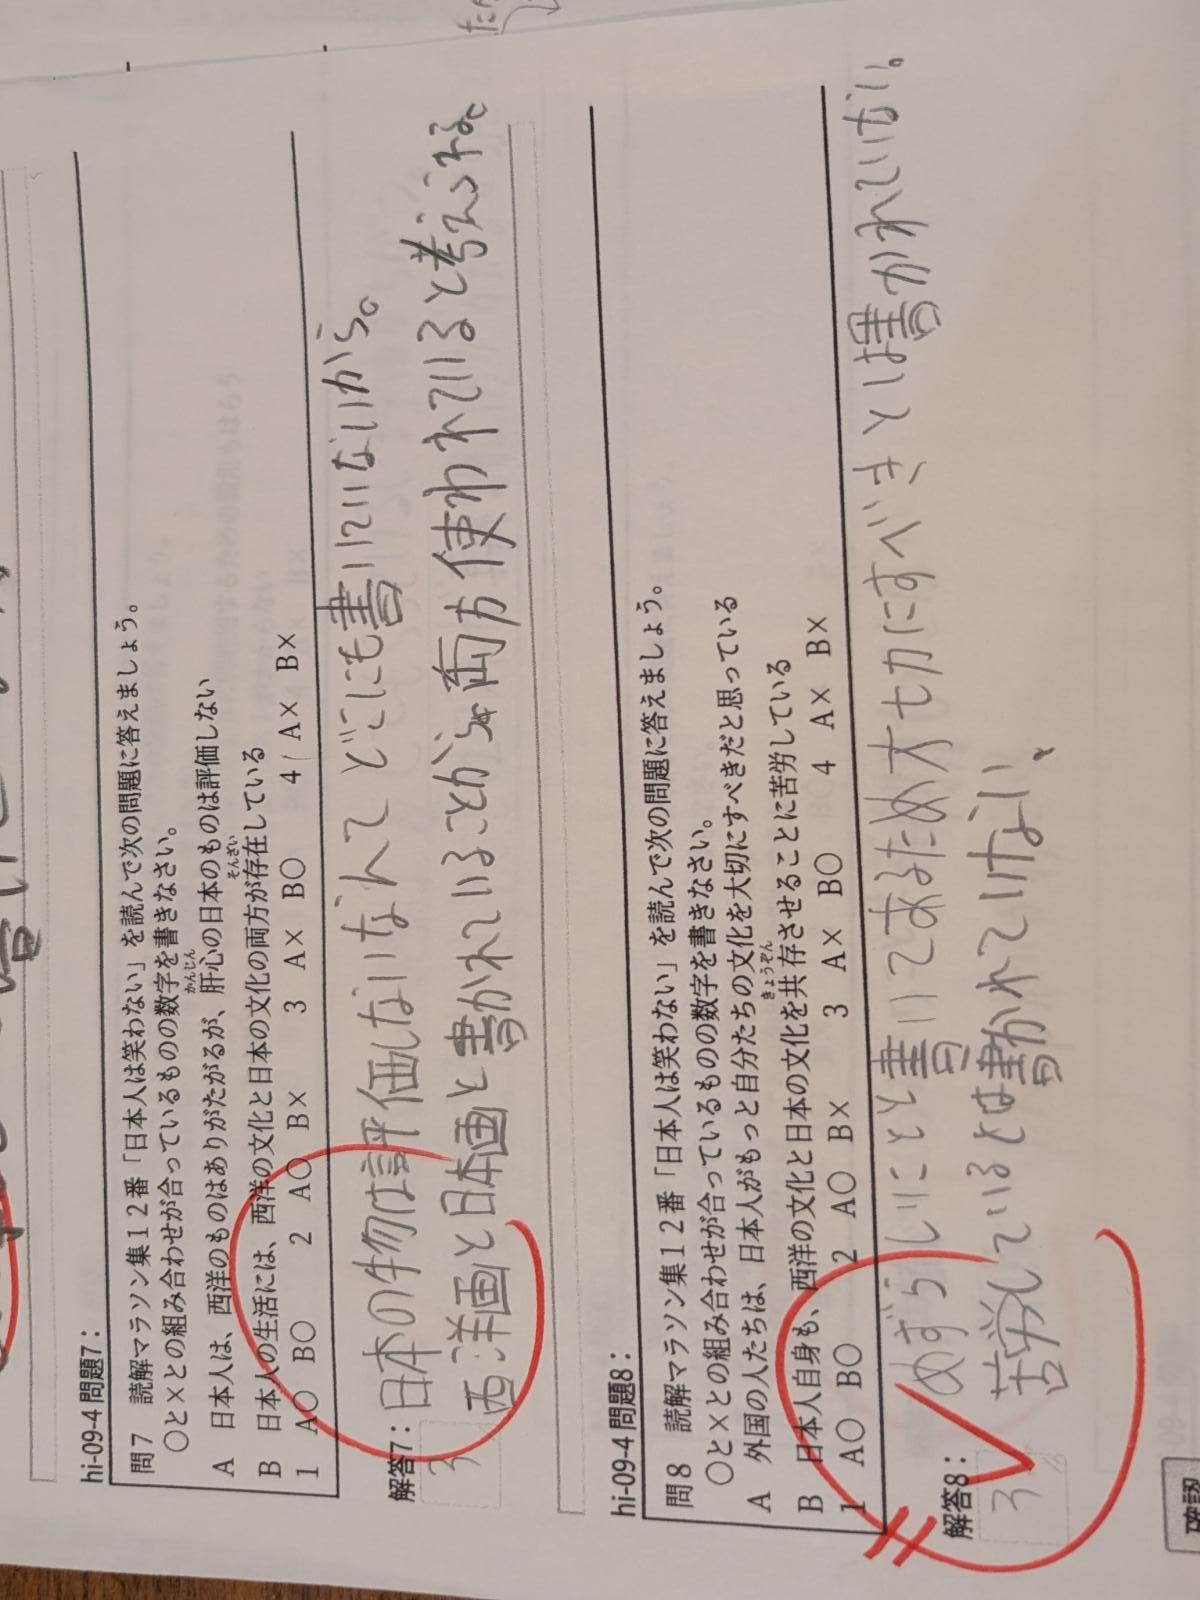 hi-09-4 問題7：
問７　読解マラソン集１２番「日本人は笑わない」を読んで次の問題に答えましょう。
○と×との組み合わせが合っているものの数字を書きなさい。
A　日本人は、西洋のものはありがたがるが、肝心の日本のものは評価しない
かんじん
B　日本人の生活には、西洋の文化と日本の文化の両方が存在している
そんざい
1　A○　B○　2　A○　B×　3　A×　B○　4　A×　B×
解答7：
3
日本の物は評価しないなんてどこにも書いていないから。
西洋画と日本画と書かれていることから両方使われていると考えられる。
hi-09-4 問題8：
問８　読解マラソン集１２番「日本人は笑わない」を読んで次の問題に答えましょう。
○と×との組み合わせが合っているものの数字を書きなさい。
A　外国の人たちは、日本人がもっと自分たちの文化を大切にすべきだと思っている
B　日本人自身も、西洋の文化と日本の文化を共存させることに苦労している
きょうぞん
1　A○　B○　2　A○　B×　3　A×　B○　4　A×　B×
解答8：
3
めずらしいことと書いてあるため大切にすべきとは書かれていない。
苦労しているとは書かれていけない、
確認